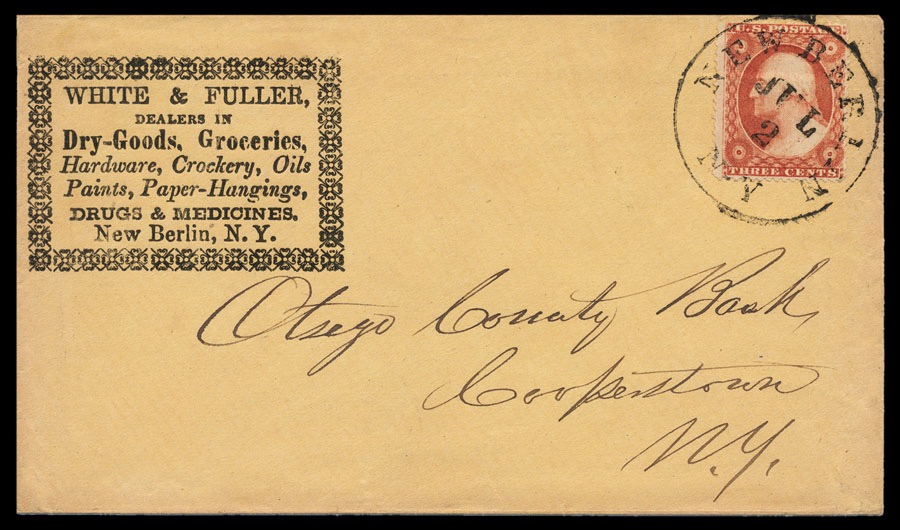 WHITE & FULLER,
DEALERS IN
Dry-Goods, Groceries,
Hardware, Crockery, Oils
Paints, Paper-Hangings,
DRUGS & MEDICINES.
New Berlin, N. Y.
U.S. POSTAGE
THREE CENTS
NEW BERLIN
N.Y
JUL
2
Otsego County Bank,
Cooperstown
N.Y.